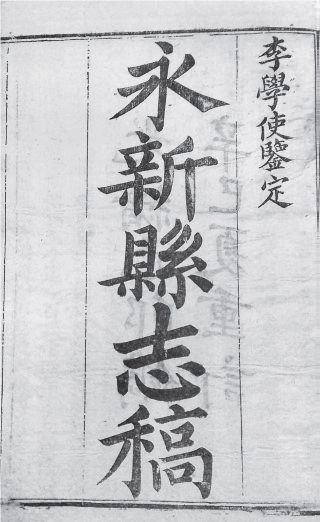 李學使鑒定
永新縣志稿